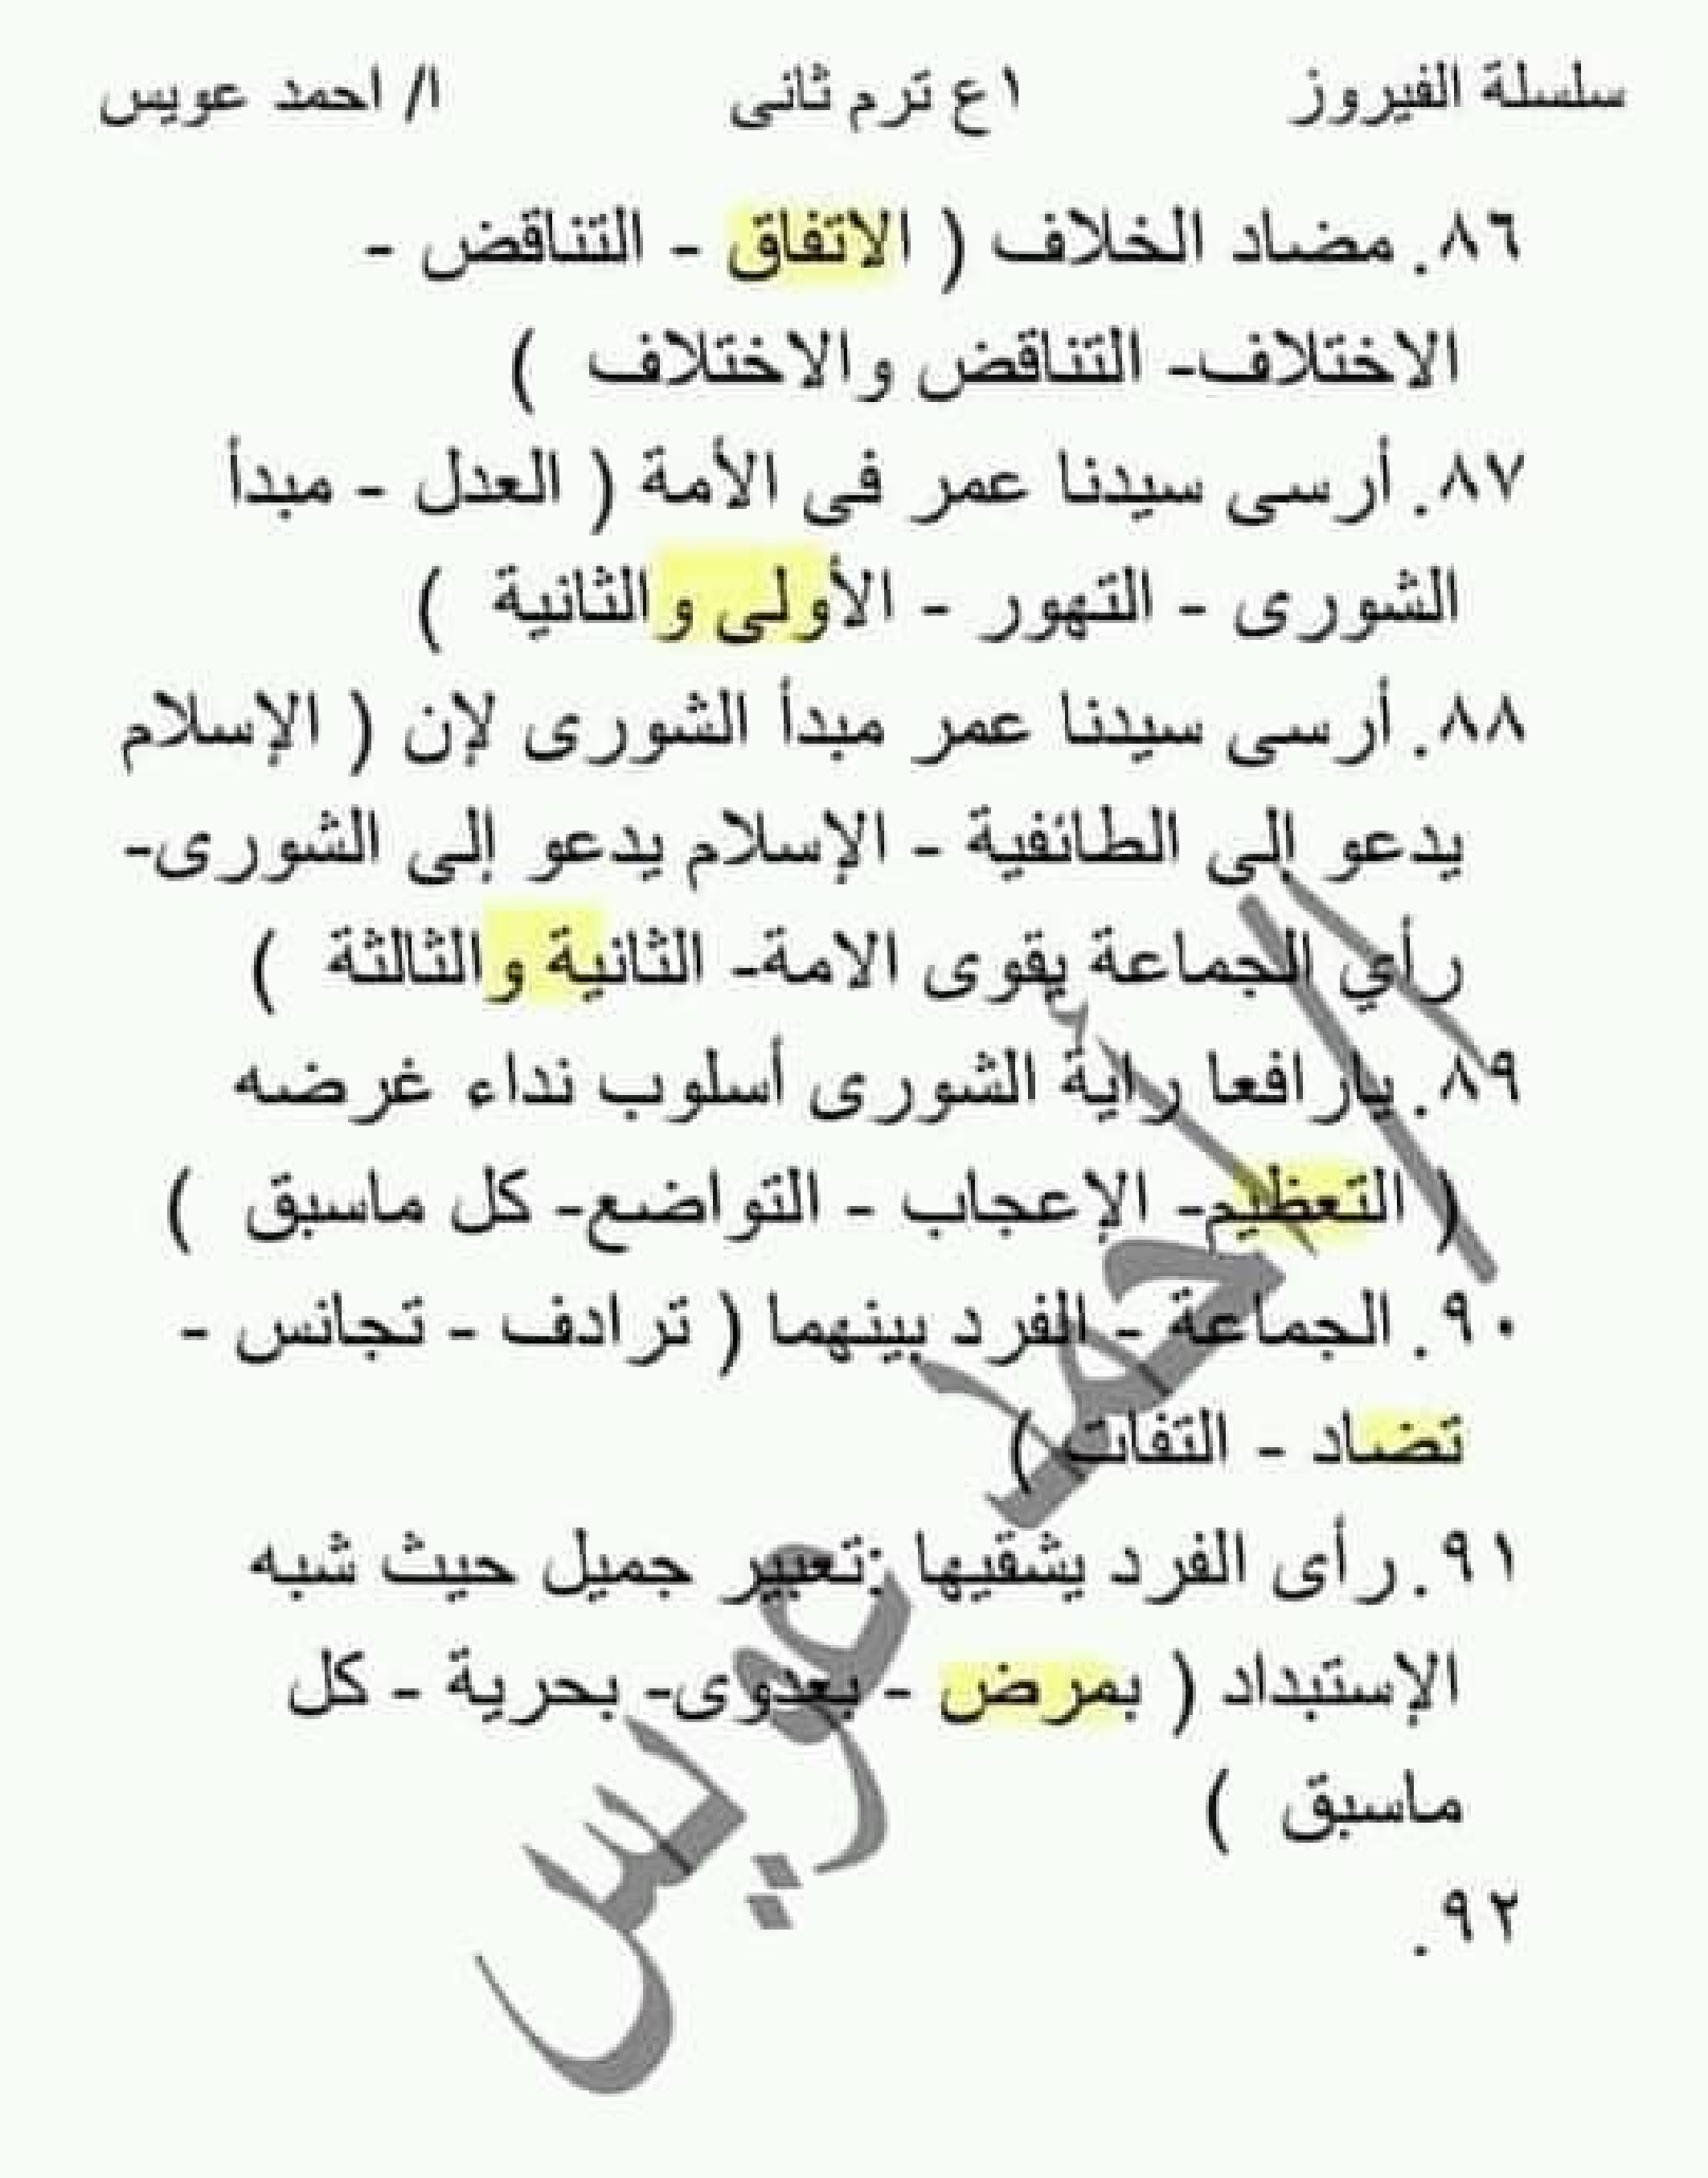 سلسلة الفيروز ١ع ترم ثانى ا/ احمد عويس
٨٦. مضاد الخلاف ( الاتفاق - التناقض -
الاختلاف- التناقض والاختلاف )
٨٧. أرسى سيدنا عمر فى الأمة ( العدل - مبدأ
الشورى - التهور - الأولى والثانية )
٨٨. أرسى سيدنا عمر مبدأ الشورى لإن ( الإسلام
يدعو إلى الطائفية - الإسلام يدعو إلى الشورى-
رأي الجماعة يقوى الامة- الثانية والثالثة )
٨٩. يارافعا راية الشورى أسلوب نداء غرضه
( التعظيم- الإعجاب - التواضع- كل ماسبق )
٩٠. الجماعة - الفرد بينهما ( ترادف - تجانس -
تضاد - التفات )
٩١. رأى الفرد يشقيها :تعبير جميل حيث شبه
الإستبداد ( بمرض - بعدوى- بحرية - كل
ماسبق )
٩٢.
أ/ أحمد عويس